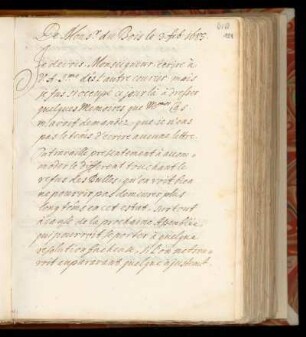 De Mons.r du Bois le 3 feb 1685
Je devois Monseigneur écrire à
V. A. S.me dès l'autre courier mais
je fus si occupé ce jour là à dresser
quelques Memoires que
m'avoit demandez, que je n'eus
pas le tems d'écrire aucune lettre.
On travaille presentement à accom
moder le different touchant le
refus des Bulles, qu'on voit bien
ne pouvoir pas demeurer plus
longtems en cet estat, surtout
à cause de la prochaine Assemblée
qui pourroit se porter à quelque
resolution facheuse, si l'on ne trou
voit auparavant quelque ajustement.